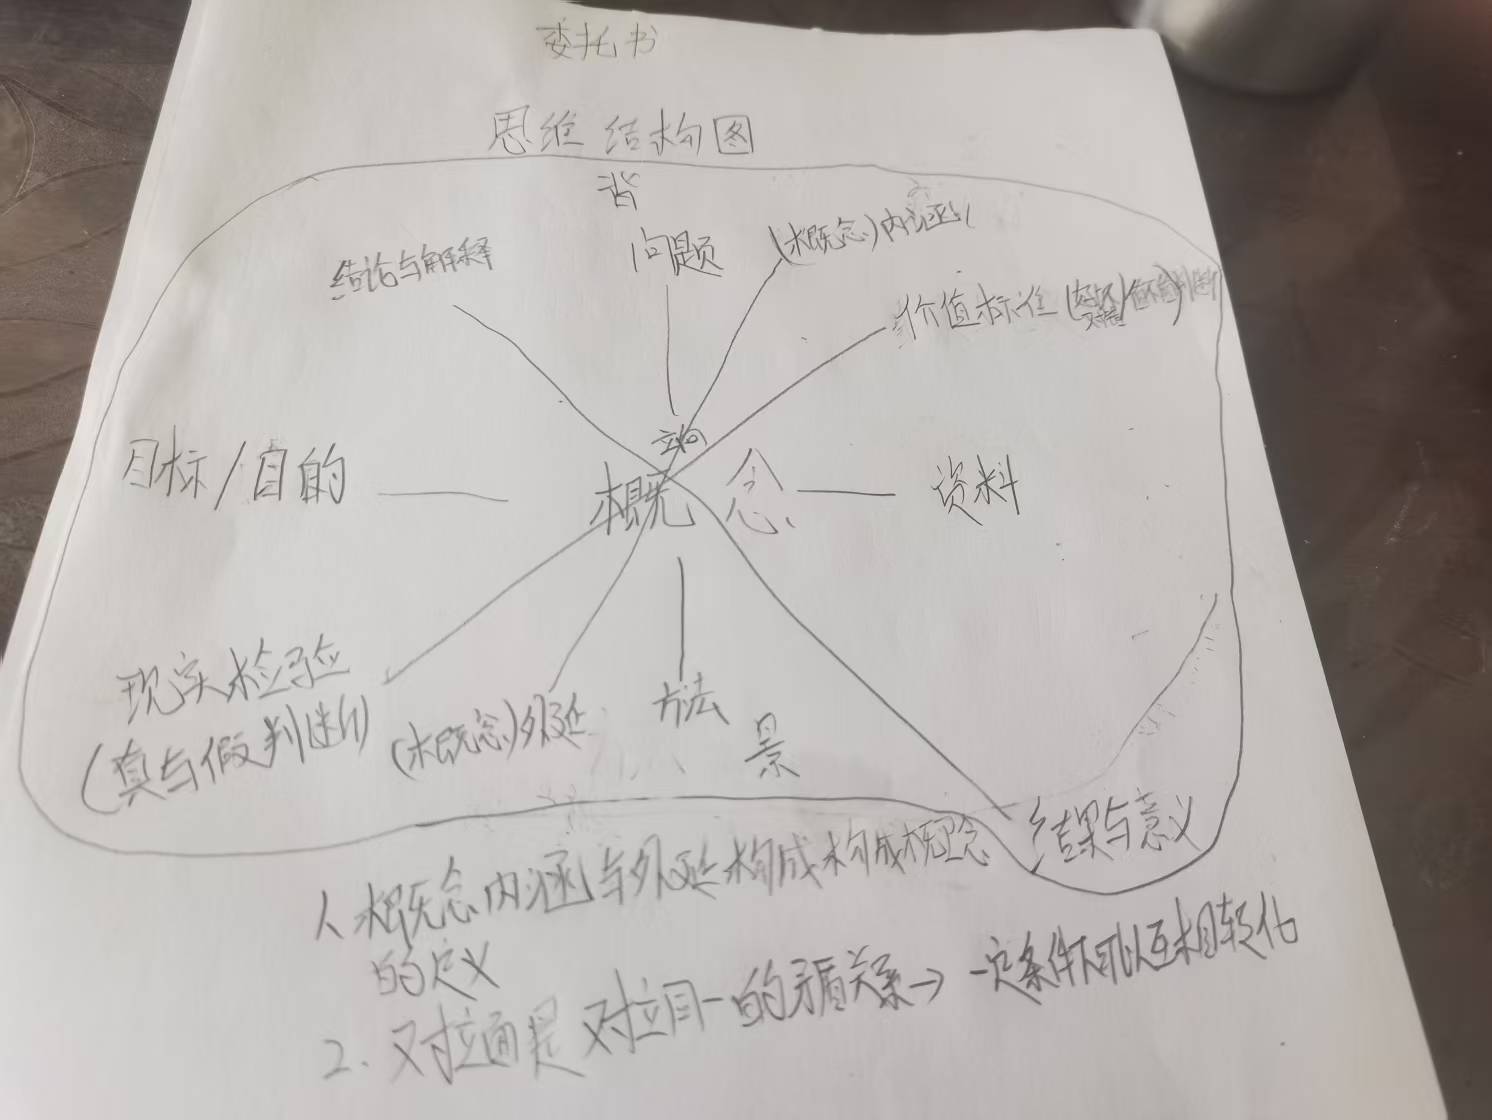 委托书
思维结构图
背
结论与解释
问题
(概念)内涵
价值标准
目标/目的
概念
资料
现实检验
(真与假判断)
(概念)外延
方法
景
结果与意义
1、概念内涵与外延构成构成概念
的定义
2、对立面是对立同一的矛盾关系→一定条件下可以互相转化